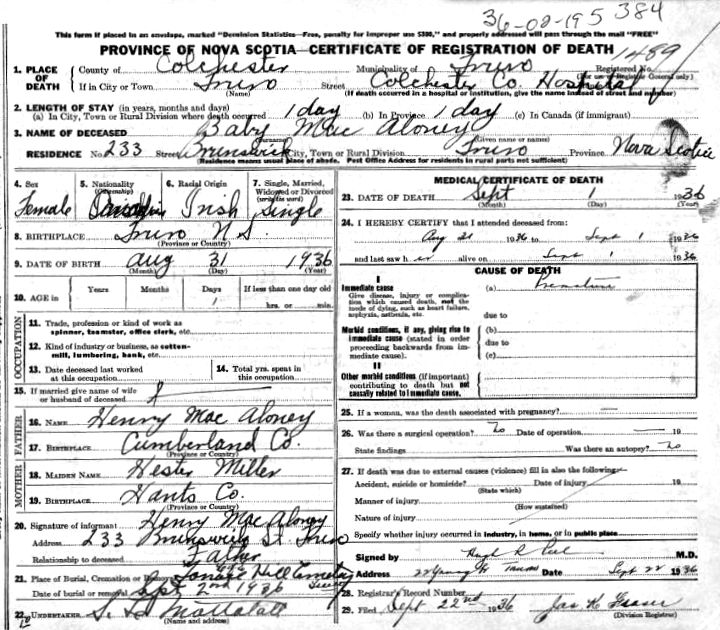 36-02-195384
This form if placed in an envelope, marked "Dominion Statistics—Free, penalty for improper use $300," and properly addressed will pass through the mail "FREE"
PROVINCE OF NOVA SCOTIA—CERTIFICATE OF REGISTRATION OF DEATH
1489
1. PLACE OF DEATH County of Colchester Municipality of Truro Registered No.
(For use of Registrar General only)
If in City or Town Truro Street Colchester Co. Hospital
(Name) (If death occurred in a hospital or institution, give the name instead of street and number)
2. LENGTH OF STAY (in years, months and days)
(a) In City, Town or Rural Division where death occurred 1 day (b) In Province 1 day (c) In Canada (if immigrant)
3. NAME OF DECEASED Baby Mac Aloney
(Surname) (Given name or names)
RESIDENCE No. 233 Street Brunswick City, Town or Rural Division Truro Province Nova Scotia
(Residence means usual place of abode. Post Office Address for residents in rural parts not sufficient)
4. Sex Female
5. Nationality (Citizenship) Canadian
6. Racial Origin Irish
7. Single, Married, Widowed or Divorced (write the word) Single
8. BIRTHPLACE Truro N.S.
(Province or Country)
9. DATE OF BIRTH Aug 31 1936
(Month) (Day) (Year)
10. AGE in Years Months Days If less than one day old
1 hrs. or min.
OCCUPATION
11. Trade, profession or kind of work as spinner, teamster, office clerk, etc.
12. Kind of industry or business, as cotton-mill, lumbering, bank, etc.
13. Date deceased last worked at this occupation
14. Total yrs. spent in this occupation
15. If married give name of wife or husband of deceased
FATHER
16. NAME Henry Mac Aloney
17. BIRTHPLACE Cumberland Co.
(Province or Country)
MOTHER
18. MAIDEN NAME Hester Miller
19. BIRTHPLACE Hants Co.
(Province or Country)
20. Signature of informant Henry Mac Aloney
Address 233 Brunswick St. Truro
Relationship to deceased Father
21. Place of Burial, Cremation or Removal Cemetery
Date of burial or removal Sept 2nd 1936
22. UNDERTAKER
(Name and address)
MEDICAL CERTIFICATE OF DEATH
23. DATE OF DEATH Sept 1 1936
(Month) (Day) (Year)
24. I HEREBY CERTIFY that I attended deceased from:
Aug 31 1936 to Sept 1 1936
and last saw her alive on Sept 1 1936
CAUSE OF DEATH
I
Immediate cause (a) Premature
Give disease, injury or complication which caused death, not the mode of dying, such as heart failure, asphyxia, asthenia, etc.
due to
Morbid conditions, if any, giving rise to immediate cause (stated in order proceeding backwards from immediate cause).
(b)
due to
(c)
II
Other morbid conditions (if important) contributing to death but not causally related to immediate cause.
25. If a woman, was the death associated with pregnancy? —
26. Was there a surgical operation? No Date of operation — 19
State findings Was there an autopsy? No
27. If death was due to external causes (violence) fill in also the following:
Accident, suicide or homicide? Date of injury 19
(State which)
Manner of injury
(How sustained)
Nature of injury
Specify whether injury occurred in industry, in home, or in public place
Signed by M.D.
Address Young St Truro Sept 22 1936
28. Registrar's Record Number
29. Filed Sept 22nd 1936 Jas K Fraser
(Division Registrar)